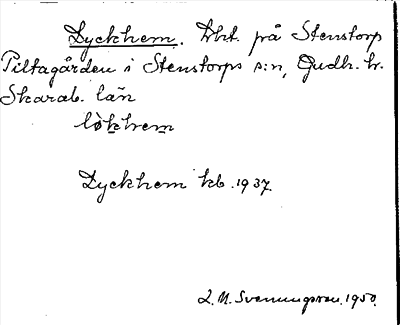 Lyckhem. Trkt. på Stenstorp
Piltagården i Stenstorps s:n, Gudh. hr.
Skarab. län
lo̊khem
Lyckhem kb. 1937.
L. M. Svenungsson. 1950.